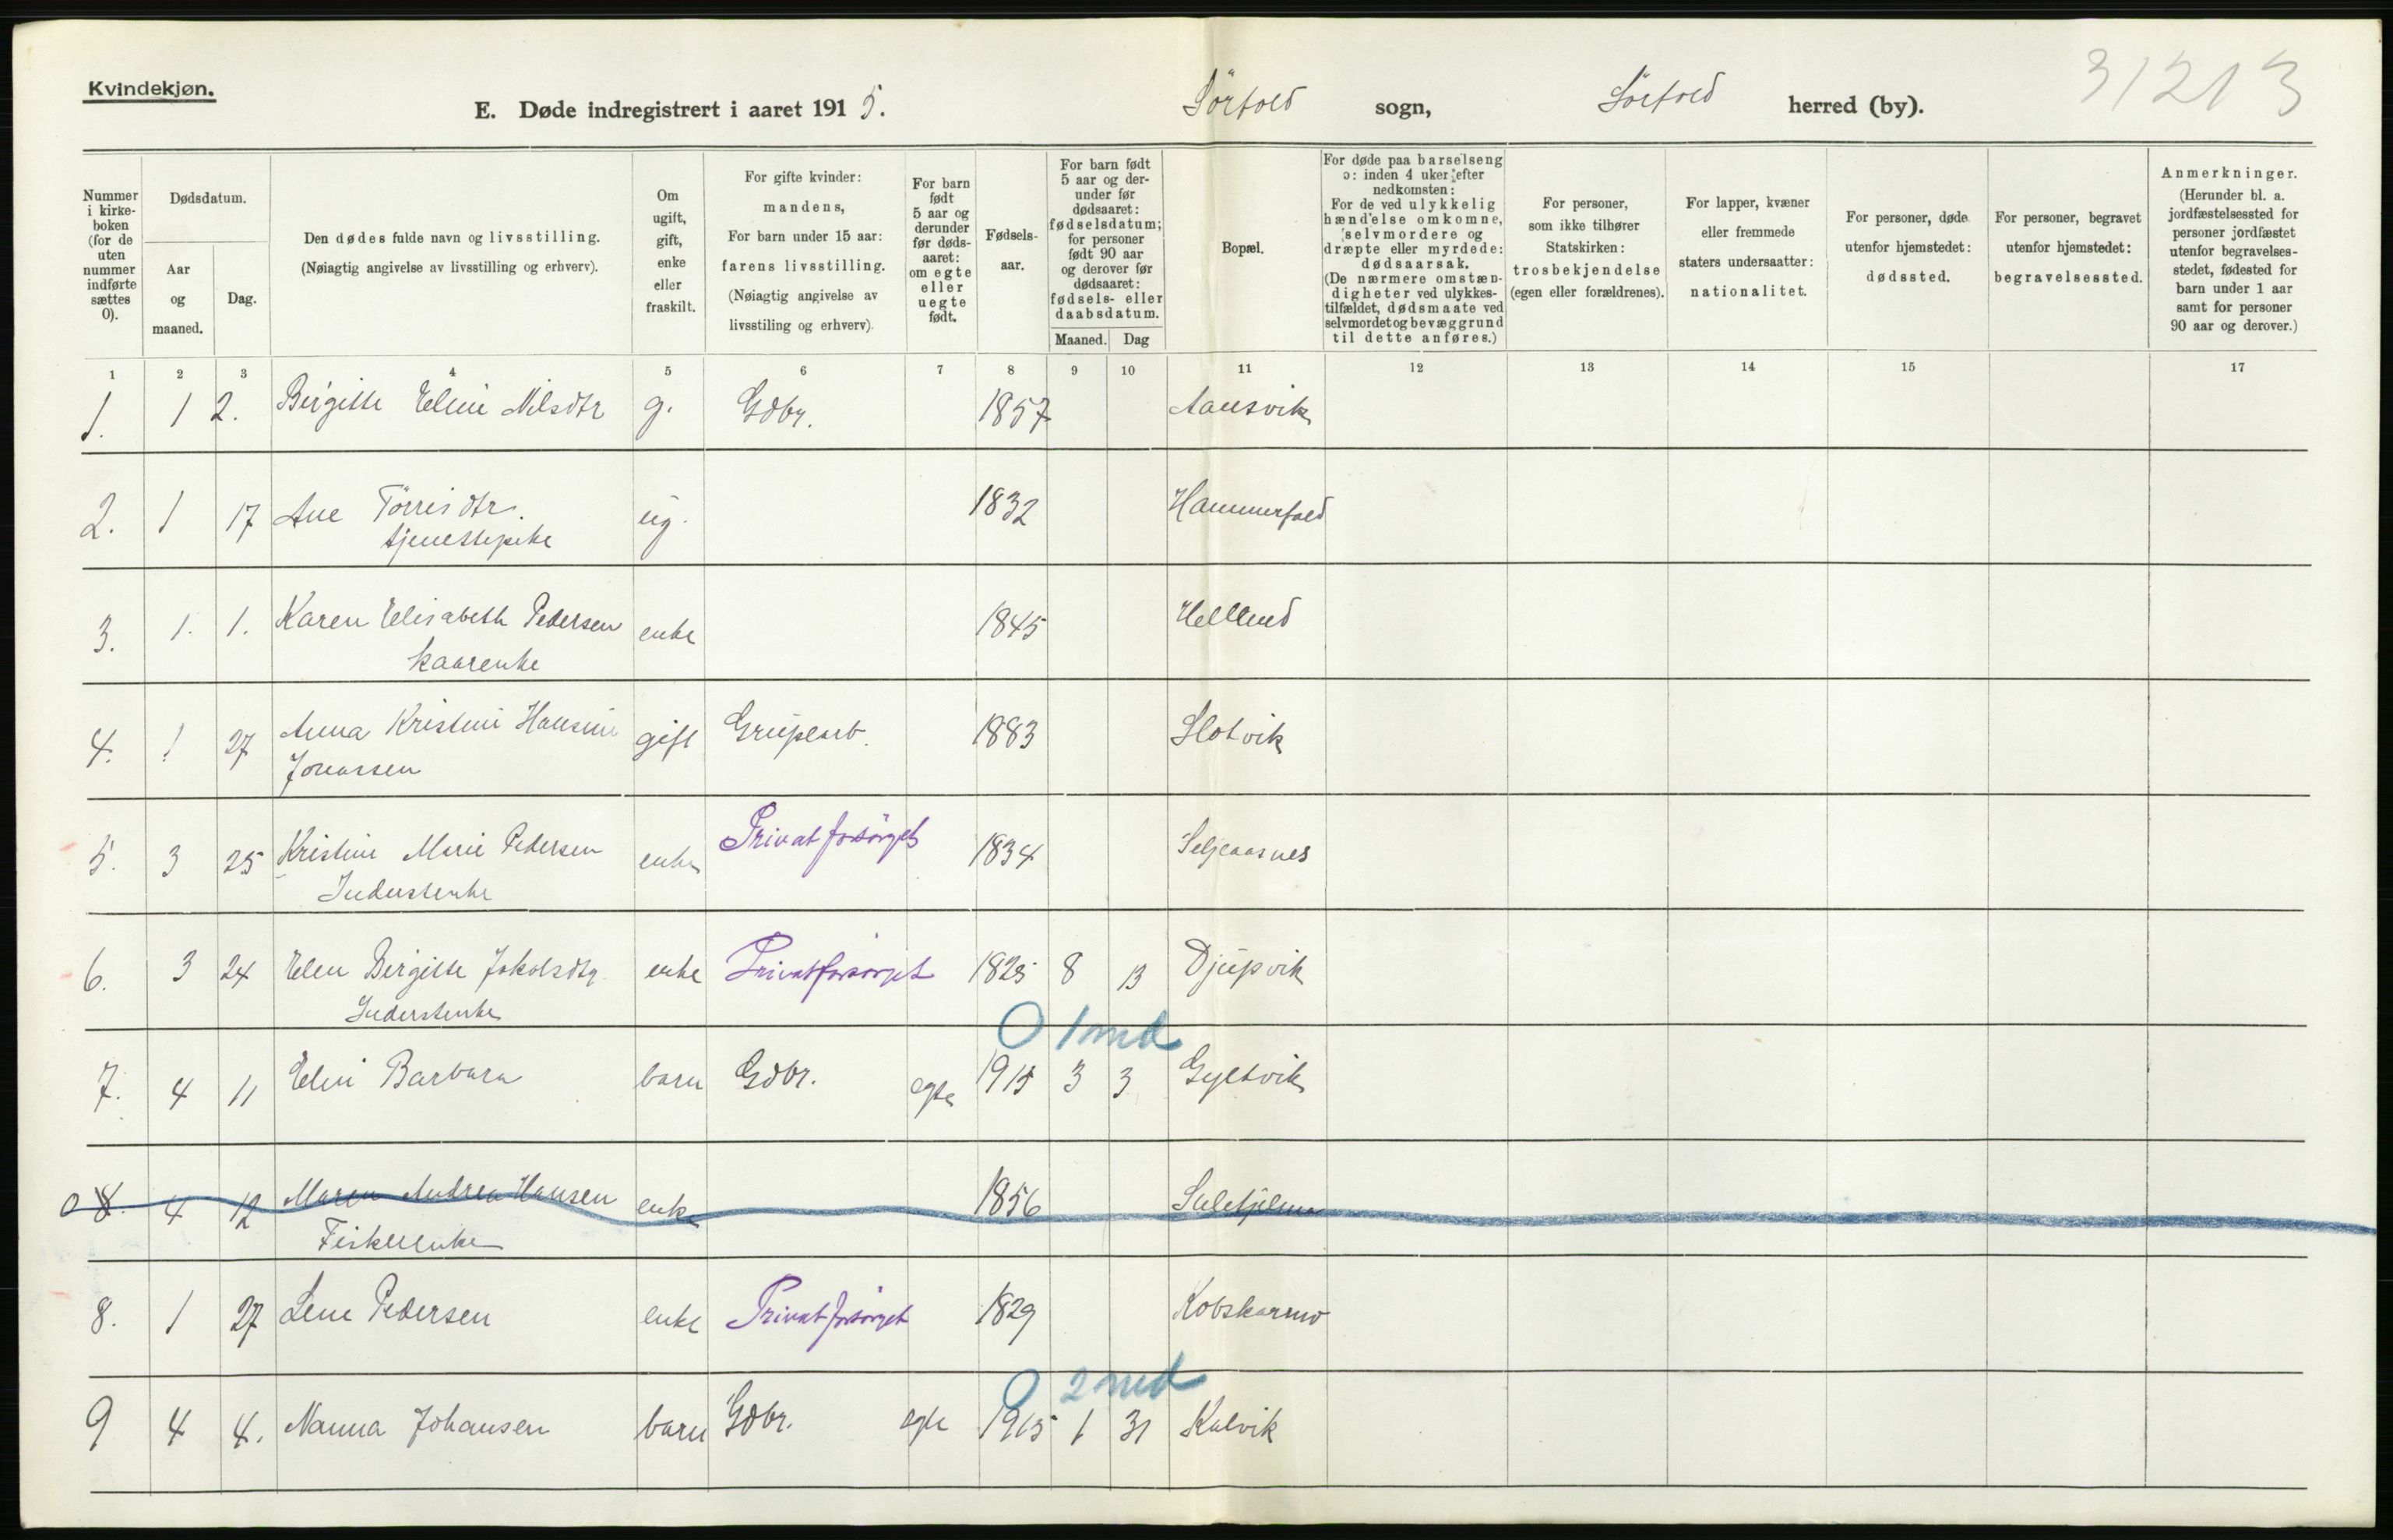 Kvindekjøn.
E. Døde indregistrert i aaret 1915.
Sörfold sogn, Sörfold herred (by).
31213
Nummer i kirke-boken (for de uten nummer indførte sættes 0).
Dødsdatum.
Aar og maaned.
Dag.
Den dødes fulde navn og livsstilling.
(Nøiagtig angivelse av livsstilling og erhverv).
Om ugift, gift, enke eller fraskilt.
For gifte kvinder: mandens,
For barn under 15 aar: farens livsstilling.
(Nøiagtig angivelse av livsstiling og erhverv).
For barn født 5 aar og derunder før døds-aaret: om egte eller uegte født.
Fødsels-aar.
For barn født 5 aar og der-under før dødsaaret: fødselsdatum; for personer født 90 aar og derover før dødsaaret: fødsels- eller daabsdatum.
Maaned. Dag
Bopæl.
For døde paa barselseng ɔ: inden 4 uker efter nedkomsten:
For de ved ulykkelig hændelse omkomne, selvmordere og dræpte eller myrdede: dødsaarsak.
(De nærmere omstæn-digheter ved ulykkes-tilfældet, dødsmaate ved selvmordet og bevæggrund til dette anføres.)
For personer, som ikke tilhører Statskirken: trosbekjendelse (egen eller forældrenes).
For lapper, kvæner eller fremmede staters undersaatter: nationalitet.
For personer, døde utenfor hjemstedet: dødssted.
For personer, begravet utenfor hjemstedet: begravelsessted.
Anmerkninger.
(Herunder bl. a. jordfæstelsessted for personer jordfæstet utenfor begravelses-stedet, fødested for barn under 1 aar samt for personer 90 aar og derover.)
1 2 3 4 5 6 7 8 9 10 11 12 13 14 15 17
1. 1 2. Bergitte Eline Nilsdtr g. Gdbr. 1857 Aausvik
2. 1 17 Ane Törrisdtr. ug. 1832 Hammerfald
tjenestepike
3. 1. 1. Karen Elisabeth Pedersen enke 1845 Helland
kaarenke
4. 1 27 Anna Kristine Hansine gift Grupearb. 1883 Slotvik
Jonassen
5. 3 25 Kristine Marie Pedersen enke Privat forsörget 1834 Seljeaasnes
Inderstenke
6. 3 24 Elen Birgitte Jakobsdtr. enke Privatforsörget 1825 8 13 Djupvik
Inderstenke
0 1 md
7. 4 11 Eline Barbara barn Gdbr. egte 1915 3 3 Gyltvik
0 8. 4 12 Maren Andrea Hansen enke 1856 Sulitjelma
Fiskerenke
8. 1 27 Lene Pedersen enke Privat forsörget 1829 Kobskarmo
0 2 md
9 4 4. Nanna Johansen barn Gdbr. egte 1915 1 31 Kalvik